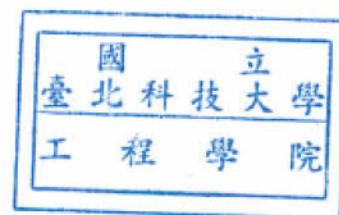 國立
臺北科技大學
工程學院